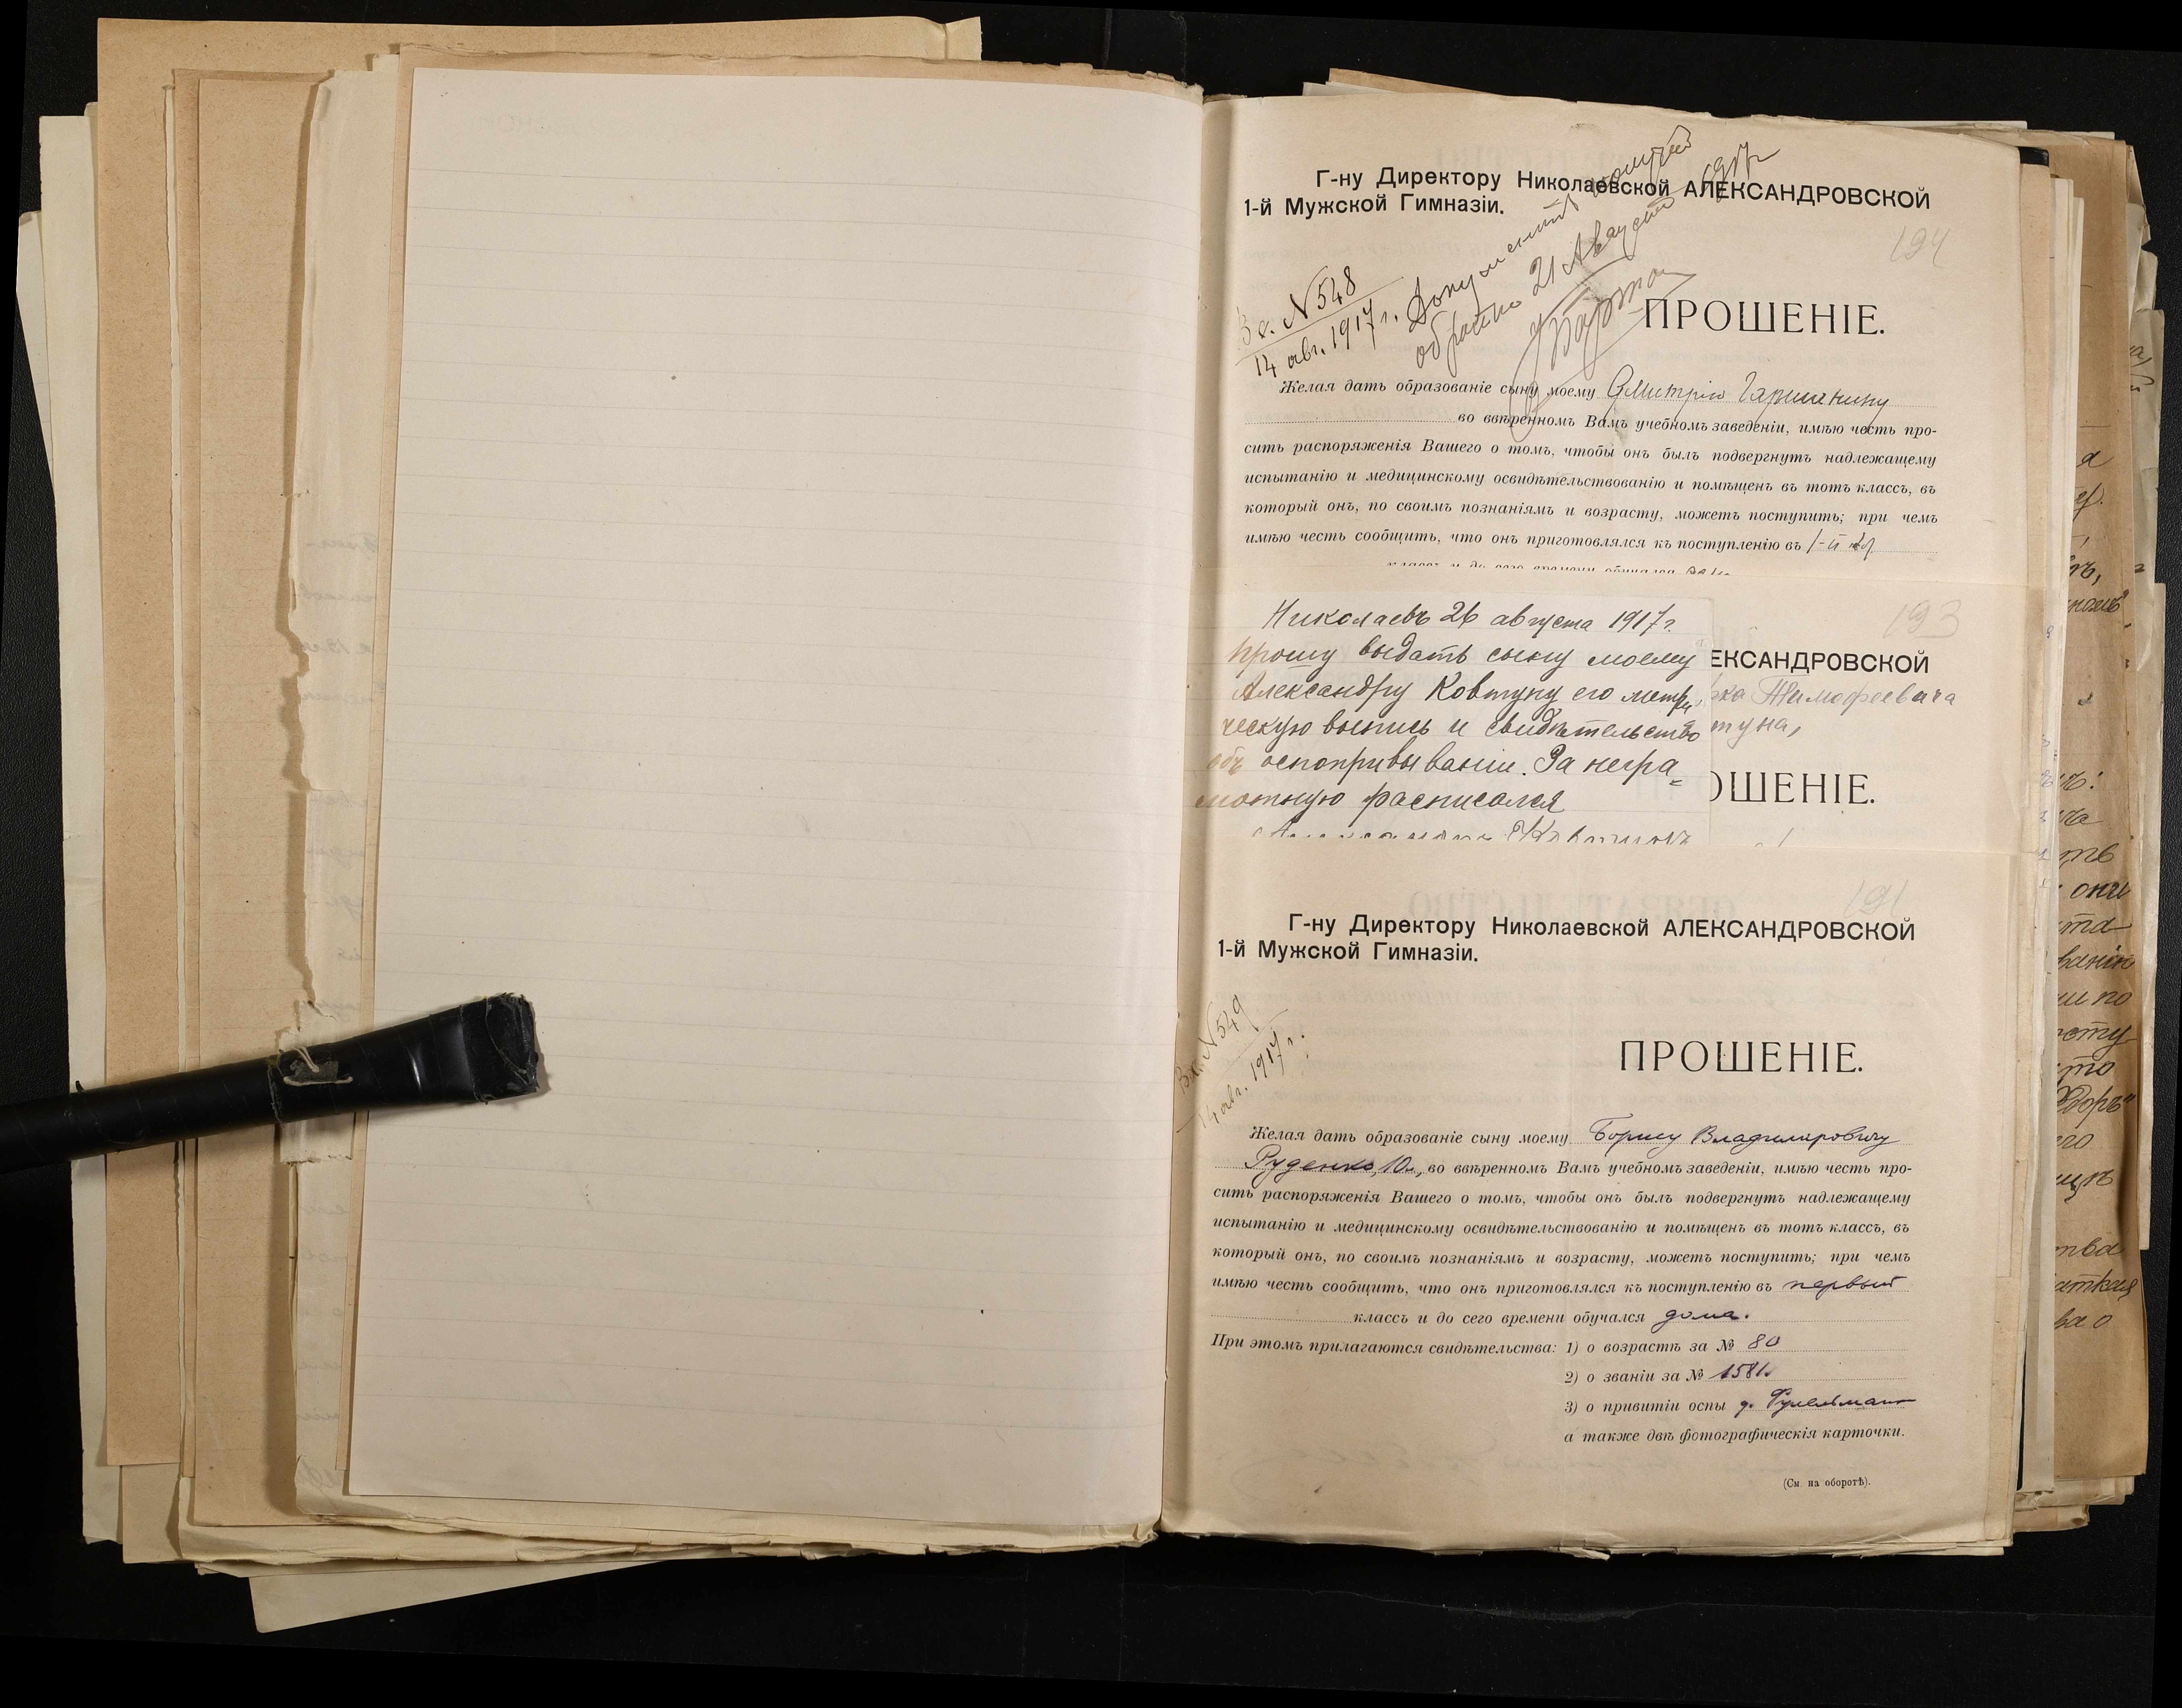 Г-ну Директору Николаевской АЛЕКСАНДРОВСКОЙ
1-й Мужской Гимназіи.
194
Документы получил
обратно 21 Августа 1917 г
Вх. N 548
14 авг. 1917 г.
ПРОШЕНІЕ.
Желая дать образованіе сыну моему Дмитрію Гаршенину
во ввѣренномъ Вамъ учебномъ заведеніи, имѣю честь про-
сить распоряженія Вашего о томъ, чтобы онъ былъ подвергнутъ надлежащему
испытанію и медицинскому освидѣтельствованію и помѣщенъ въ тотъ классъ, въ
который онъ, по своимъ познаніямъ и возрасту, можетъ поступить; при чемъ
имѣю честь сообщить, что онъ приготовлялся къ поступленію въ 1-й кл
классъ и до сего времени обучался
193
Николаевъ 26 августа 1917 г.
прошу выдать сыну моему
Александру Ковтуну его метри-
ческую выпись и свидѣтельство
объ оспопрививаніи. За негра-
мотную расписался
ЕКСАНДРОВСКОЙ
Тимофеевича
туна,
ОШЕНІЕ.
191
Г-ну Директору Николаевской АЛЕКСАНДРОВСКОЙ
1-й Мужской Гимназіи.
Вх. N 549
14 авг. 1917 г.
ПРОШЕНІЕ.
Желая дать образованіе сыну моему Борису Владимировичу
Руденко, 10 л., во ввѣренномъ Вамъ учебномъ заведеніи, имѣю честь про-
сить распоряженія Вашего о томъ, чтобы онъ былъ подвергнутъ надлежащему
испытанію и медицинскому освидѣтельствованію и помѣщенъ въ тотъ классъ, въ
который онъ, по своимъ познаніямъ и возрасту, можетъ поступить; при чемъ
имѣю честь сообщить, что онъ приготовлялся къ поступленію въ первый
классъ и до сего времени обучался дома.
При этомъ прилагаются свидѣтельства: 1) о возрастѣ за № 80
2) о званіи за № 1581
3) о привитіи оспы д.
а также двѣ фотографическія карточки.
(См. на оборотѣ).